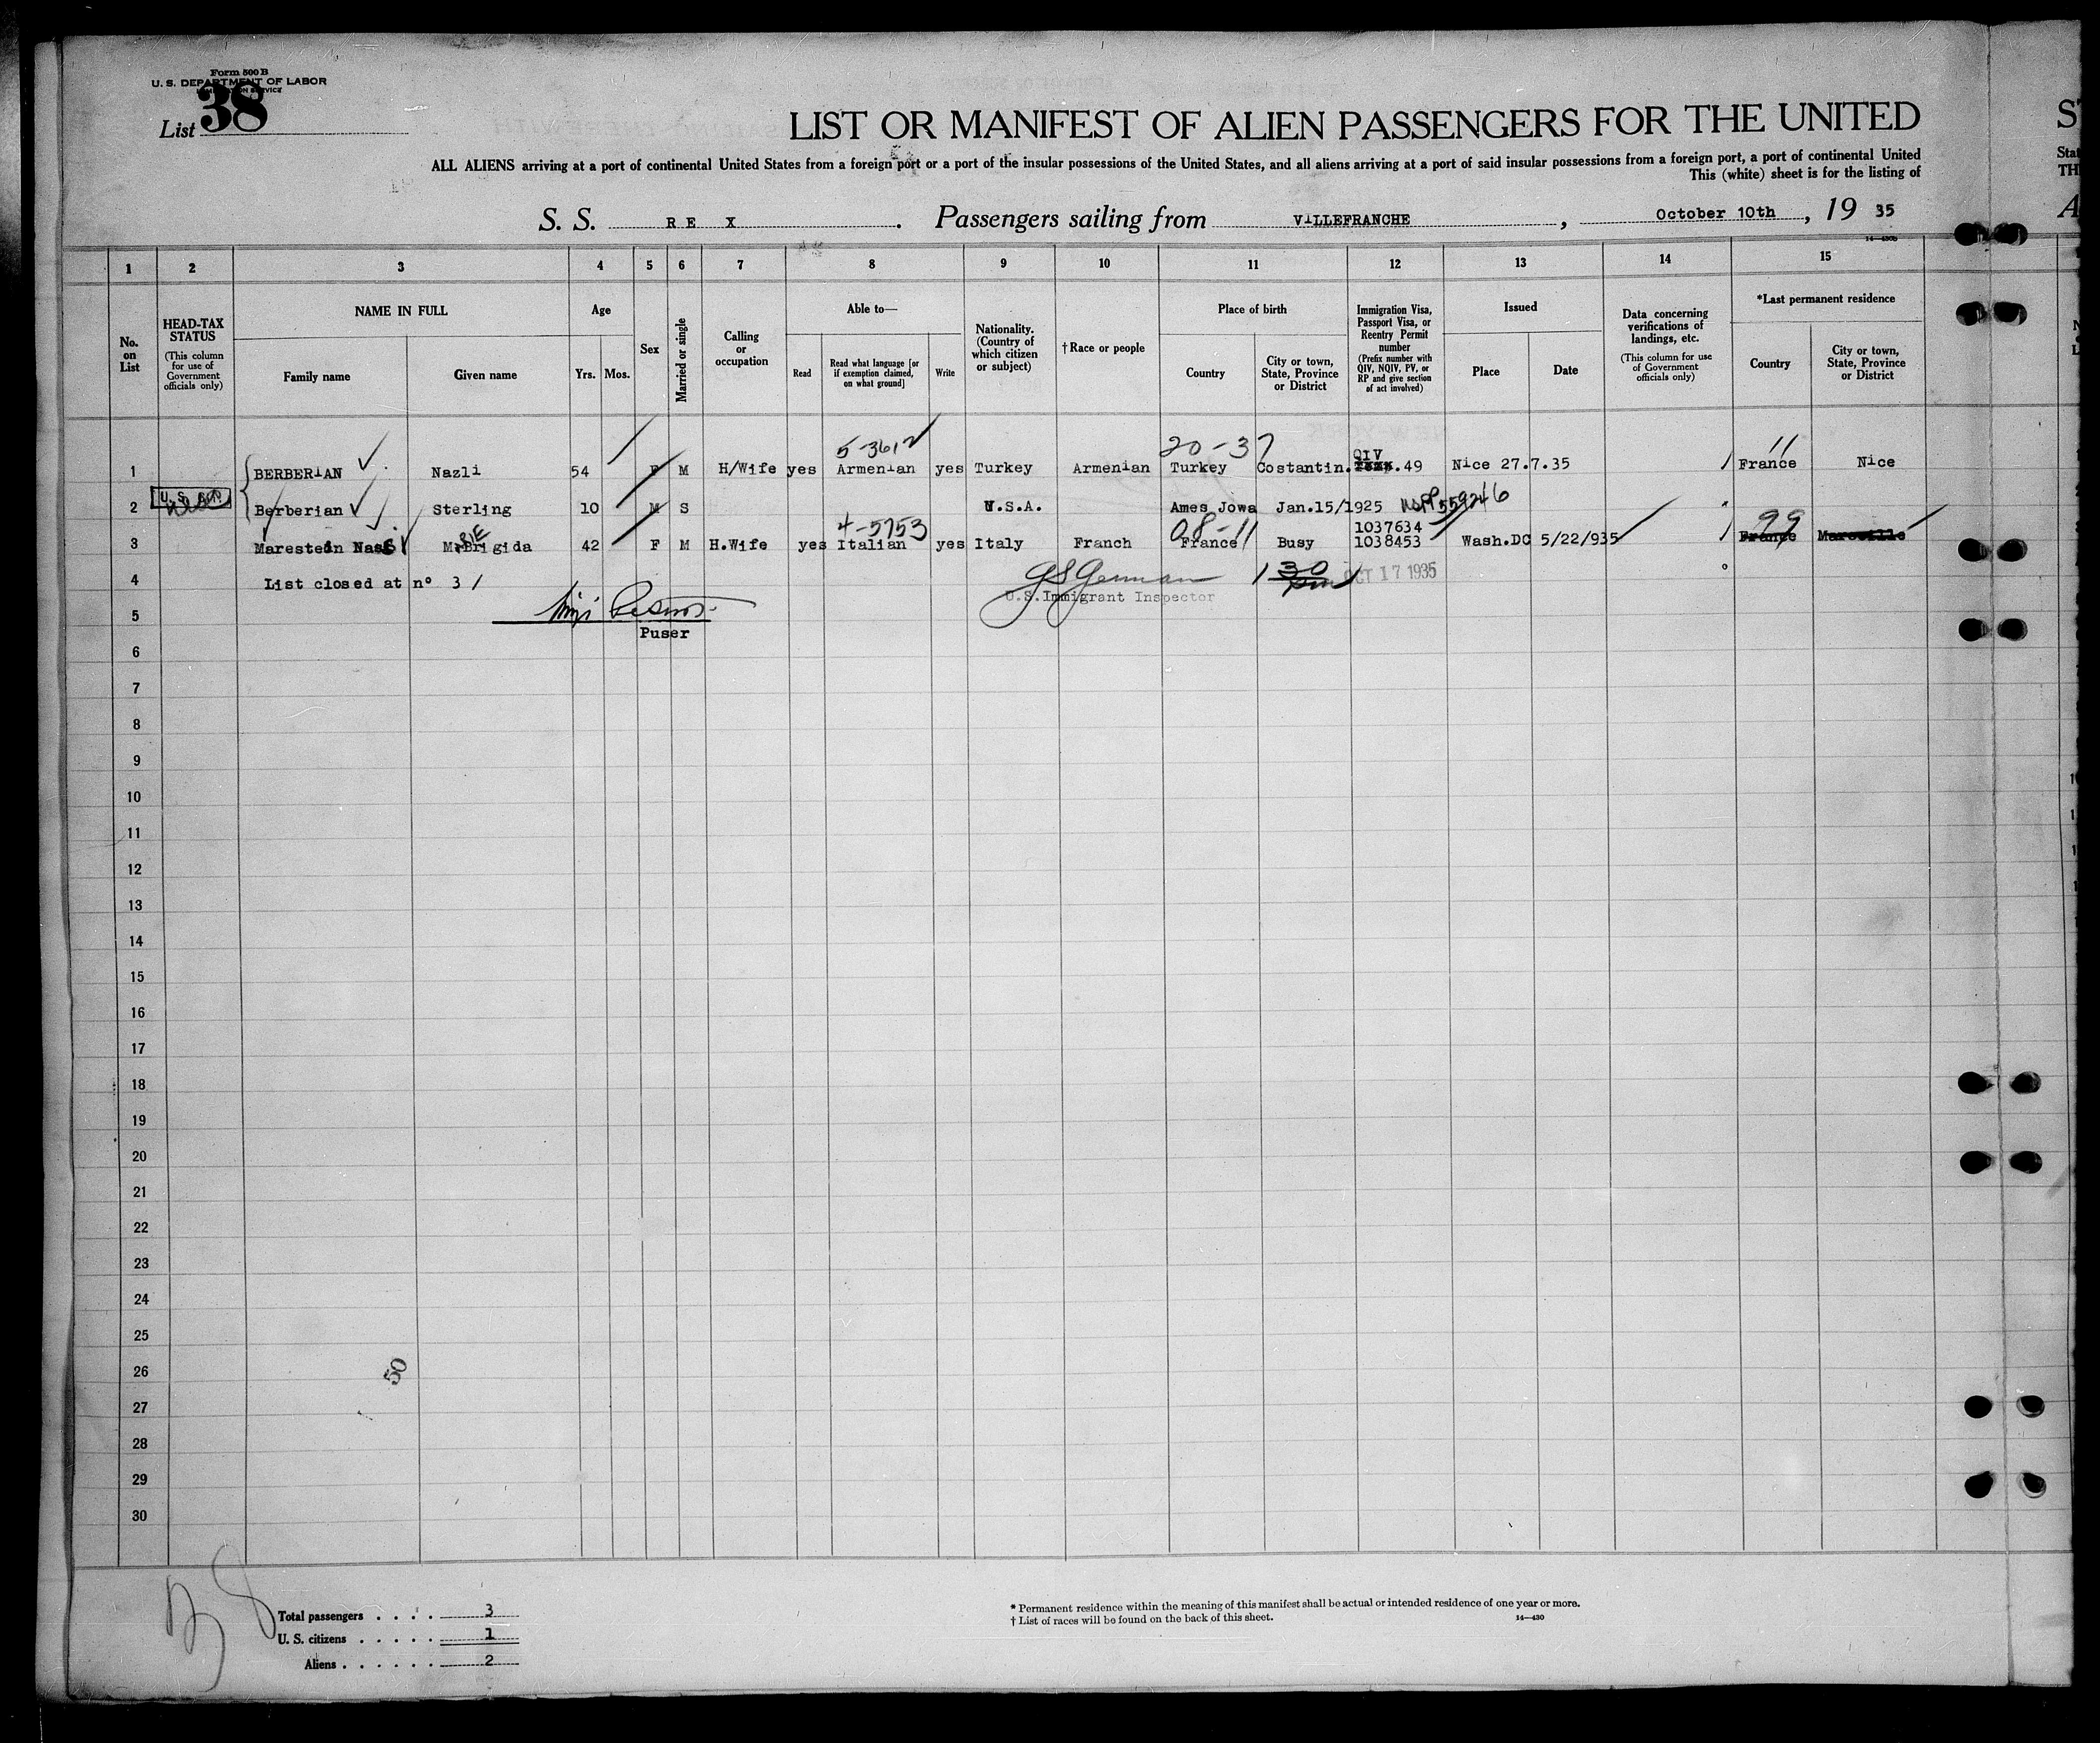 Form 500 B
U. S. DEPARTMENT OF LABOR
IMMIGRATION SERVICE
List 38
LIST OR MANIFEST OF ALIEN PASSENGERS FOR THE UNITED
ALL ALIENS arriving at a port of continental United States from a foreign port or a port of the insular possessions of the United States, and all aliens arriving at a port of said insular possessions from a foreign port, a port of continental United
This (white) sheet is for the listing of
S. S. R E X . Passengers sailing from VILLEFRANCHE , October 10th , 19 35
1 2 3 4 5 6 7 8 9 10 11 12 13 14 15
No. on List
HEAD-TAX STATUS (This column for use of Government officials only)
NAME IN FULL Family name Given name
Age Yrs. Mos.
Sex
Married or single
Calling or occupation
Able to— Read Read what language [or if exemption claimed, on what ground] Write
Nationality. (Country of which citizen or subject)
† Race or people
Place of birth Country City or town, State, Province or District
Immigration Visa, Passport Visa, or Reentry Permit number (Prefix number with QIV, NQIV, PV, or RP and give section of act involved)
Issued Place Date
Data concerning verifications of landings, etc. (This column for use of Government officials only)
*Last permanent residence Country City or town, State, Province or District
5-3612 20-37 11
1 BERBERIAN Nazli 54 F M H/Wife yes Armenian yes Turkey Armenian Turkey Costantin. QIV 49 Nice 27.7.35 France Nice
2 Berberian Sterling 10 M S U.S.A. Ames Jowa Jan.15/1925 559246
4-5753 08-11 1037634 99
3 Marestein Nass M.Brigida 42 F M H.Wife yes Italian yes Italy Franch France Busy 1038453 Wash.DC 5/22/935 France Marseille
4 List closed at n° 3 / OCT 17 1935
U.S.Immigrant Inspector
5
Puser
6
7
8
9
10
11
12
13
14
15
16
17
18
19
20
21
22
23
24
25
26
50
27
28
29
30
38
Total passengers . . . . 3
U. S. citizens . . . . . 1
Aliens . . . . . . 2
* Permanent residence within the meaning of this manifest shall be actual or intended residence of one year or more.
† List of races will be found on the back of this sheet.
14—430